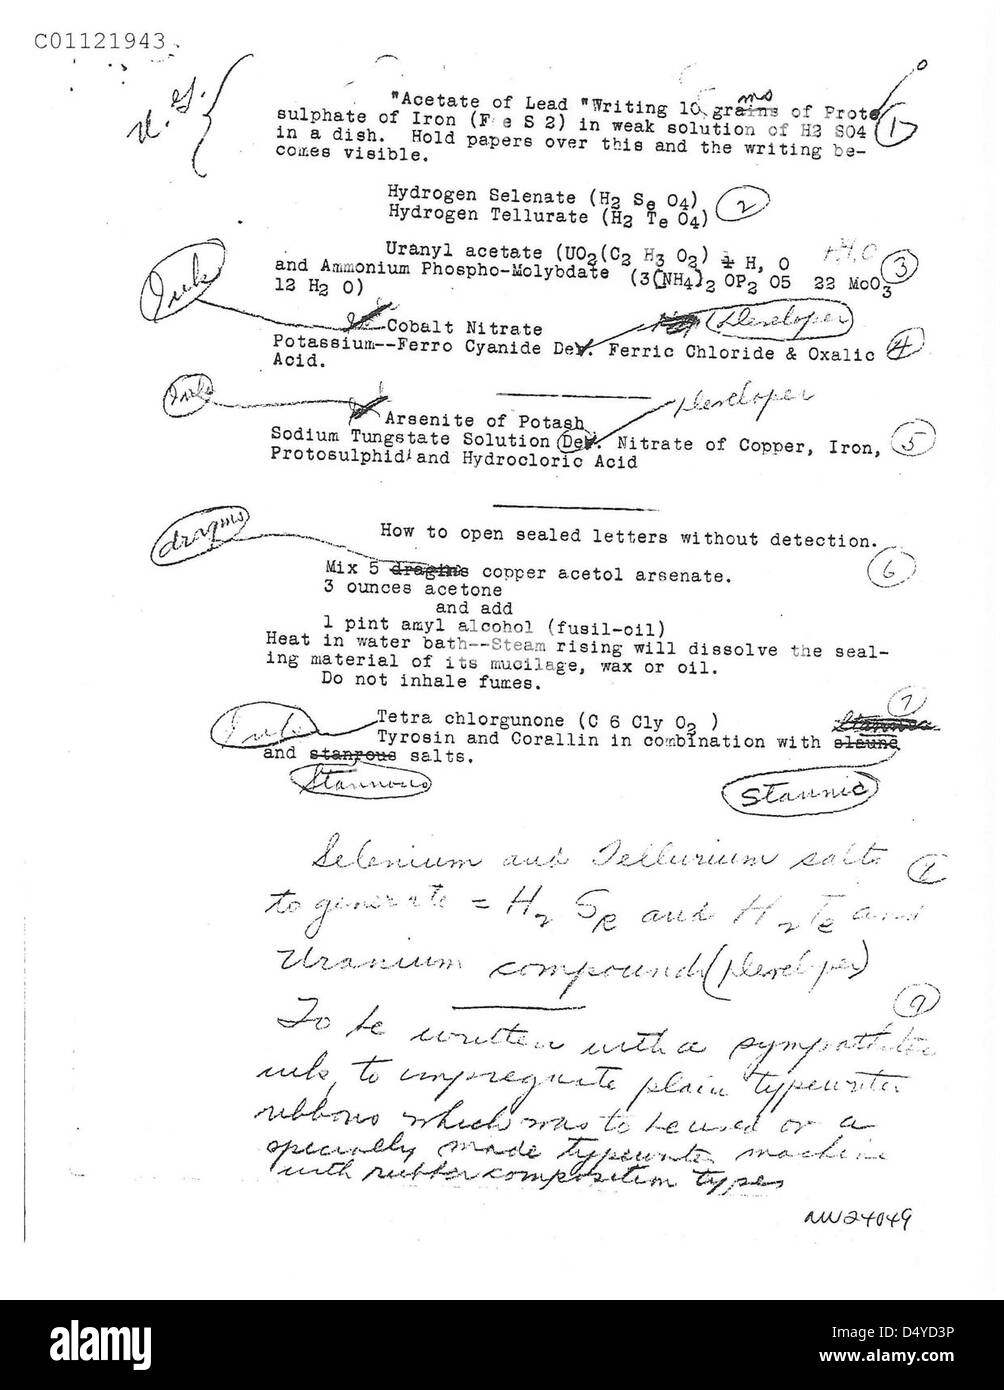 C01121943
U. S.
"Acetate of Lead "Writing 10 grains ms of Proto
sulphate of Iron (F e S 2) in weak solution of H2 SO4 1
in a dish. Hold papers over this and the writing be-
comes visible.
Hydrogen Selenate (H2 Se O4) 2
Hydrogen Tellurate (H2 Te O4)
Uranyl acetate (UO2(C2 H3 O2) + H, O +H2O 3
and Ammonium Phospho-Molybdate (3(NH4)2 OP2 O5 22 MoO3
12 H2 O)
Ink
Cobalt Nitrate Developer
Potassium--Ferro Cyanide Dev. Ferric Chloride & Oxalic 4
Acid.
Ink Developer
Arsenite of Potash
Sodium Tungstate Solution Dev. Nitrate of Copper, Iron, 5
Protosulphid and Hydrocloric Acid
dragms
How to open sealed letters without detection.
6
Mix 5 dragins copper acetol arsenate.
3 ounces acetone
and add
1 pint amyl alcohol (fusil-oil)
Heat in water bath--Steam rising will dissolve the seal-
ing material of its mucilage, wax or oil.
Do not inhale fumes.
7
Ink Tetra chlorgunone (C 6 Cly O2 )
Tyrosin and Corallin in combination with
and stanrous salts.
Stannous Stannic
Selenium and Tellurium salts
to generate = H2 Se and H2 Te and
Uranium compound (Developer)
9
To be written with a sympathetic
ink, to impregnate plain typewriter
ribbons which was to be used on a
specially made typewriter machine
with rubber composition types
NW 24049
alamy
Image ID: D4YD3P
www.alamy.com